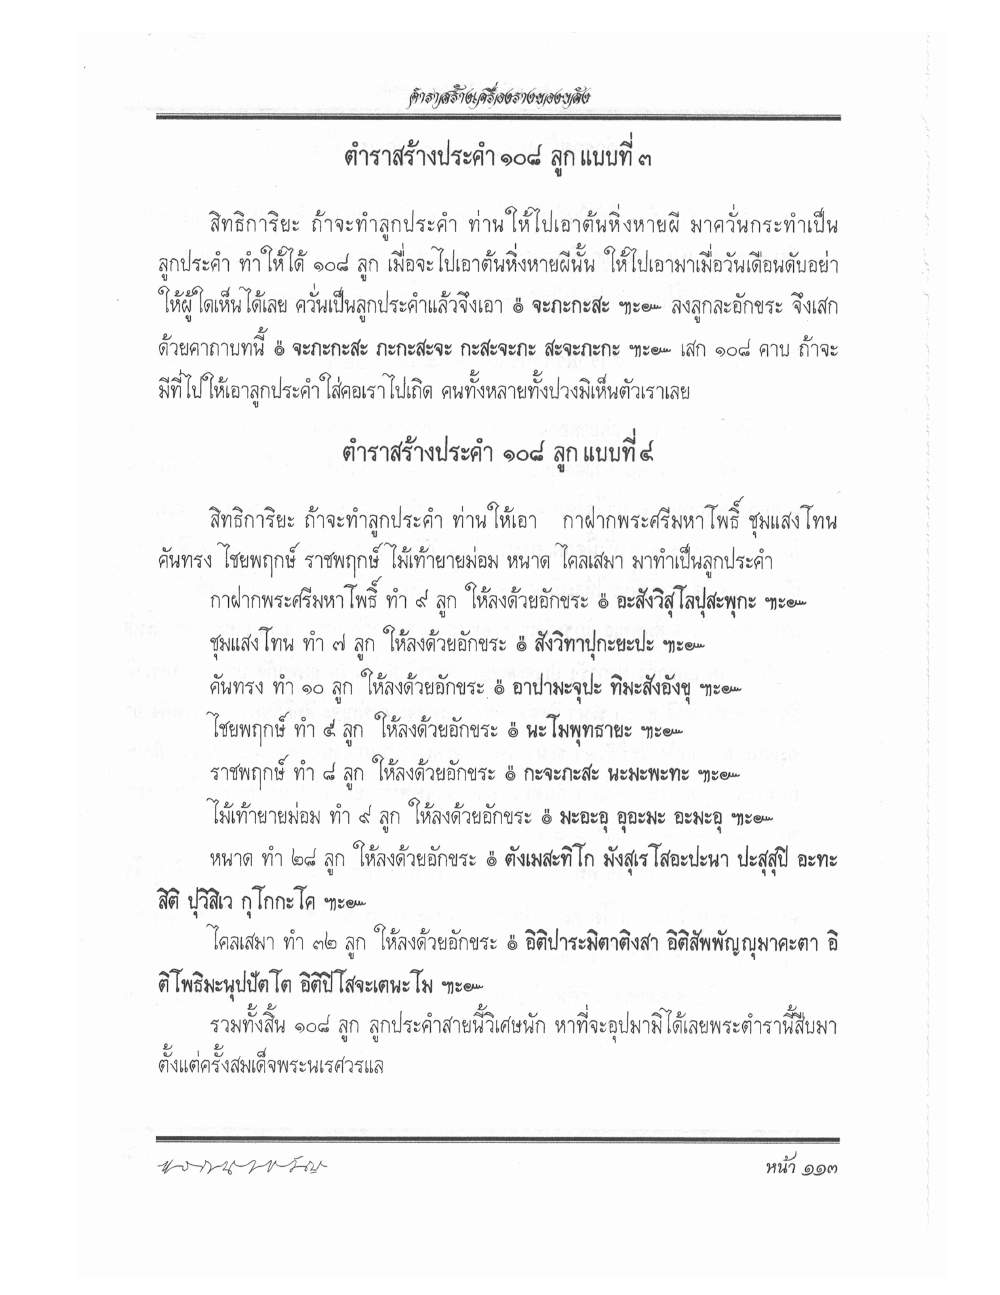 ตำราสร้างเครื่องรางของขลัง
ตำราสร้างประคำ ๑๐๘ ลูก แบบที่ ๓
สิทธิการิยะ ถ้าจะทำลูกประคำ ท่านให้ไปเอาต้นหิ่งหายผี มาควั่นกระทำเป็น
ลูกประคำ ทำให้ได้ ๑๐๘ ลูก เมื่อจะไปเอาต้นหิ่งหายผีนั้น ให้ไปเอามาเมื่อวันเดือนดับอย่า
ให้ผู้ใดเห็นได้เลย ควั่นเป็นลูกประคำแล้วจึงเอา ๏ จะภะกะสะ ฯะ๛ ลงลูกละอักขระ จึงเสก
ด้วยคาถาบทนี้ ๏ จะภะกะสะ ภะกะสะจะ กะสะจะภะ สะจะภะกะ ฯะ๛ เสก ๑๐๘ คาบ ถ้าจะ
มีที่ไปให้เอาลูกประคำใส่คอเราไปเถิด คนทั้งหลายทั้งปวงมิเห็นตัวเราเลย
ตำราสร้างประคำ ๑๐๘ ลูก แบบที่ ๔
สิทธิการิยะ ถ้าจะทำลูกประคำ ท่านให้เอา กาฝากพระศรีมหาโพธิ์ ชุมแสงโทน
คันทรง ไชยพฤกษ์ ราชพฤกษ์ ไม้เท้ายายม่อม หนาด ไคลเสมา มาทำเป็นลูกประคำ
กาฝากพระศรีมหาโพธิ์ ทำ ๙ ลูก ให้ลงด้วยอักขระ ๏ อะสังวิสุโลปุสะพุภะ ฯะ๛
ชุมแสงโทน ทำ ๗ ลูก ให้ลงด้วยอักขระ ๏ สังวิทาปุกะยะปะ ฯะ๛
คันทรง ทำ ๑๐ ลูก ให้ลงด้วยอักขระ ๏ อาปามะจุปะ ทีมะสังอังขุ ฯะ๛
ไชยพฤกษ์ ทำ ๕ ลูก ให้ลงด้วยอักขระ ๏ นะโมพุทธายะ ฯะ๛
ราชพฤกษ์ ทำ ๘ ลูก ให้ลงด้วยอักขระ ๏ กะจะภะสะ นะมะพะทะ ฯะ๛
ไม้เท้ายายม่อม ทำ ๙ ลูก ให้ลงด้วยอักขระ ๏ มะอะอุ อุอะมะ อะมะอุ ฯะ๛
หนาด ทำ ๒๘ ลูก ให้ลงด้วยอักขระ ๏ ตังเมสะทิโก มังสุเรโสอะปะนา ปะสุสุปิ อะทะ
สิติ ปุวิสิเว กุโกกะโค ฯะ๛
ไคลเสมา ทำ ๓๒ ลูก ให้ลงด้วยอักขระ ๏ อิติปาระมิตาติงสา อิติสัพพัญญุมาคะตา อิ
ติโพธิมะนุปปัตโต อิติปิโสจะเตนะโม ฯะ๛
รวมทั้งสิ้น ๑๐๘ ลูก ลูกประคำสายนี้วิเศษนัก หาที่จะอุปมามิได้เลยพระตำรานี้สืบมา
ตั้งแต่ครั้งสมเด็จพระนเรศวรแล
หน้า ๑๑๓